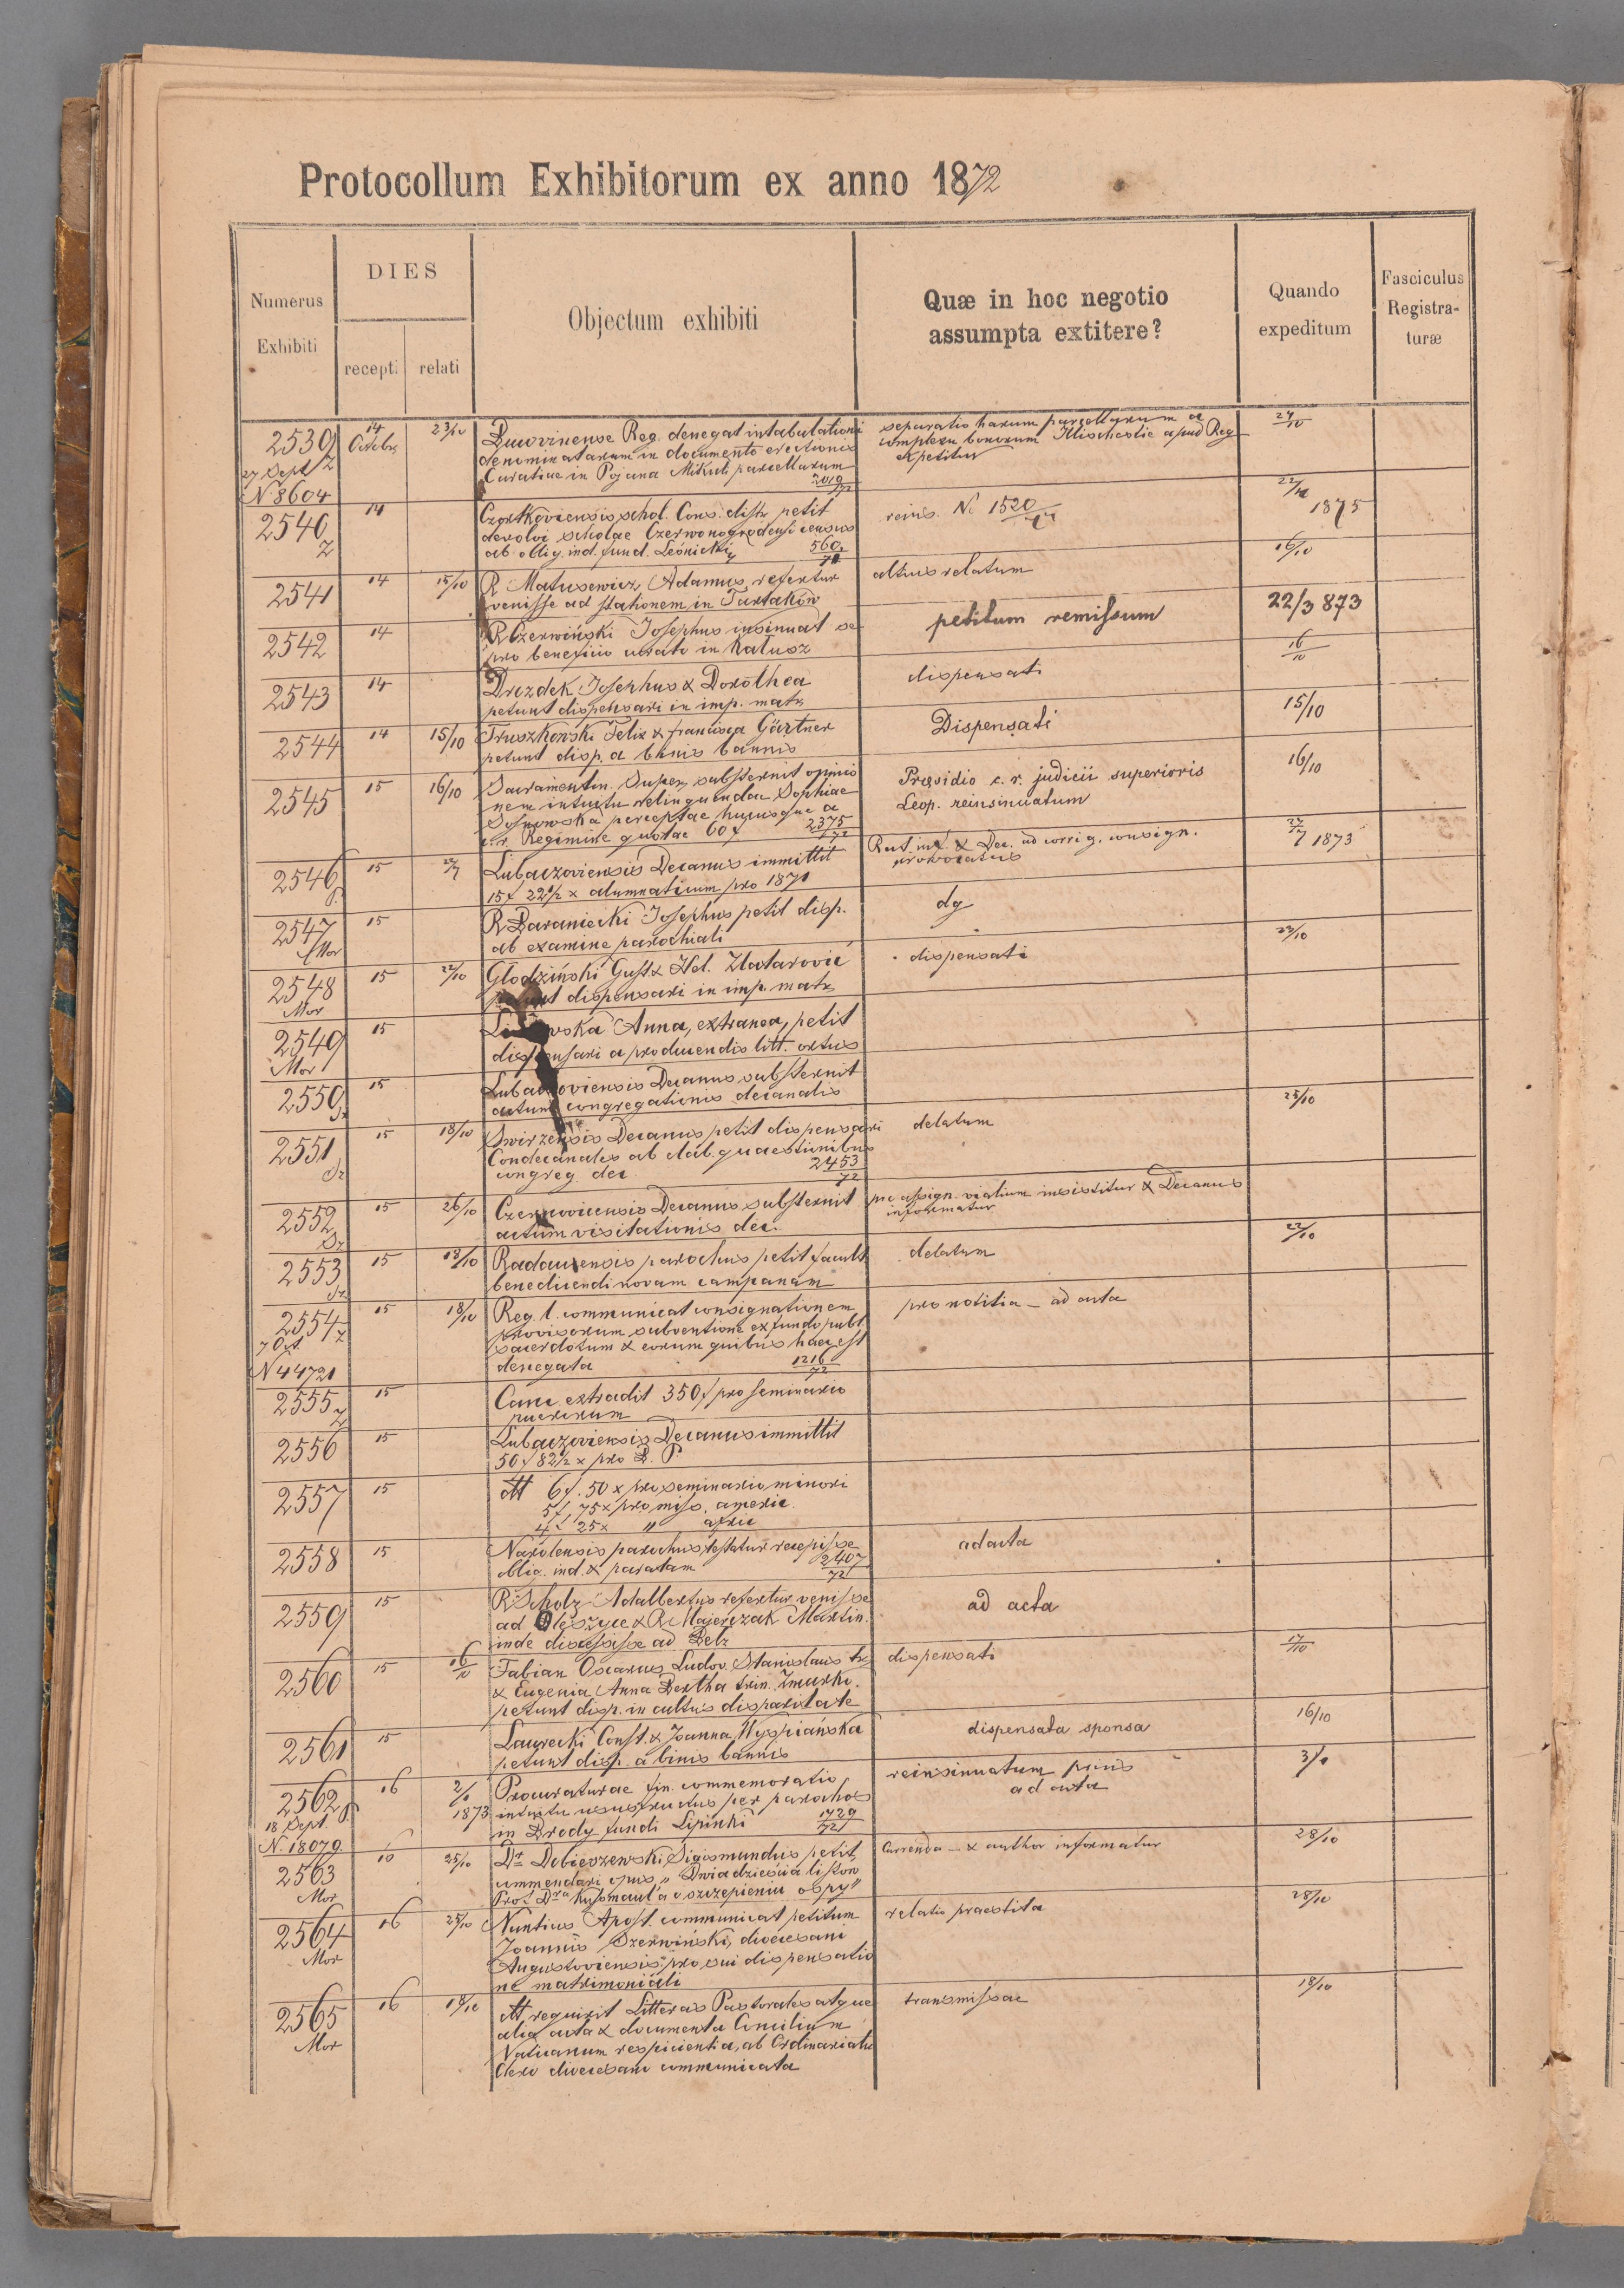 Protocollum Exhibitorum ex anno 1872
Numerus Exhibiti
DIES
recepti
relati
Objectum exhibiti
Quæ in hoc negotio assumpta extitere?
Quando expeditum
Fasciculus Registra-turæ
2539 14 Octobr 23/10 Bucovinense Reg. denegat intabulationi separatio harum parcellarum a 24/10
27 Sept denominatarum in documento erectionis complexu bonorum apud Reg
N 8604 Curatiae in Pojana Mikuli parcellarum expetitur
2019/72
2540 14 Czortkoviensis schol. Cons. distr petit reins. N. 1520 22/12 1875
Z devolvi scholae Czerwonogrodensi census
ab oblig. ind. fund. Leśnicki 560
2541 14 15/10 R Matusewicz Adamus refertur altius relatum 16/10
venisse ad stationem in Tartaków
2542 14 R Czerwiński Josephus insinuat se petitum remissum 22/3 873
pro beneficio curato in Kałusz
2543 14 Drozdek Josephus & Dorothea dispensati 16/10
petunt dispensari in imp. matr
2544 14 15/10 Truszkowski Felix & francisca Gärtner Dispensati 15/10
petunt disp. a binis bannis
2545 15 16/10 Sacramentin. Super. substernit opinio Præsidio c. r. judicii superioris 16/10
nem intuitu relinquendae Sophiae Leop. reinsinuatum
Sosnowska perceptae hucusque a
c. r. Regimine quotae 60 f 2375/72
2546 15 Lubaczoviensis Decanus immittit & Dec. ad corrig. consign. 1873
15 f 22 1/2 x alumnaticum pro 1871 provocatus
2547 15 R Baraniecki Josephus petit disp. dg
Mor ab examine parochiali
2548 15 22/10 Głodziński Gust & Hel. Zlatarović dispensati 23/10
Mor petunt dispensari in imp. matr
2549 15 Anna, extranea, petit
Mor dispensari a producendis litt. ortus
2550 15 Lubaczoviensis Decanus substernit
actum congregationis decanalis
2551 15 18/10 Swirzensis Decanus petit dispensari delatum 25/10
Condecanales ab elab. quaestionibus
congreg. dec 2453/72
2552 15 26/10 Czernovicensis Decanus substernit assign. viatium insistitur & Decanus
actum visitationis dec. informatur
2553 15 18/10 Radautensis parochus petit facult delatum 22/10
benedicendi novam campanam
2554 15 18/10 Reg. l. communicat consignationem pro notitia – ad acta
7 Oct. provisorum subventione ex fundo publ
N 44721 sacerdotum & eorum quibus haec est
denegata 1216/72
2555 15 Canc extradit 350 f pro seminario
puerorum
2556 15 Lubaczoviensis Decanus immittit
50 f 82 1/2 x pro B. P.
2557 15 6 f. 50 x pro seminario minori
5 f 75 x pro miss. americ.
4 f 25 x " afric
2558 15 Narolensis parochus testatur recepisse ad acta
oblig. ind. & paratam 2407/72
2559 15 R Scholz Adalbertus refertur venisse ad acta
ad Oleszyce & R Majerczak Martin.
inde discessisse ad Belz
2560 15 16/10 Fabian Oscarus Ludov. Stanislaus tr. dispensati 17/10
& Eugenia Anna Bertha trin.
petunt disp. in cultus disparitate
2561 15 Lawrecki Const. & Joanna Wyspiańska dispensata sponsa 16/10
petunt disp. a binis bannis
2562 16 1873 Procuraturae fin. commemoratio reinsinuatum prius
18 Sept. intuitu ususfructus per parochos ad acta
N. 18079 in Brody fundi Lipinki 1729/72
2563 16 25/10 Dr Dobieszewski Sigismundus petit Currenda – & author informatur 28/10
Mor commendari opus „Dwadzieścia listow
Prof. Dra Kusmaul'a o szczepieniu ospy"
2564 16 25/10 Nuntius Apost. communicat petitum relatio praestita 28/10
Mor Joannis Szerwinski, dioecesani
Augustoviensis, pro sui dispensatio
ne matrimoniali
2565 16 18/10 requirit Litteras Pastorales atque transmissae 18/10
Mor alia acta & documenta Concilium
Vaticanum respicientia, ab Ordinariatu
Clero dioecesano communicata